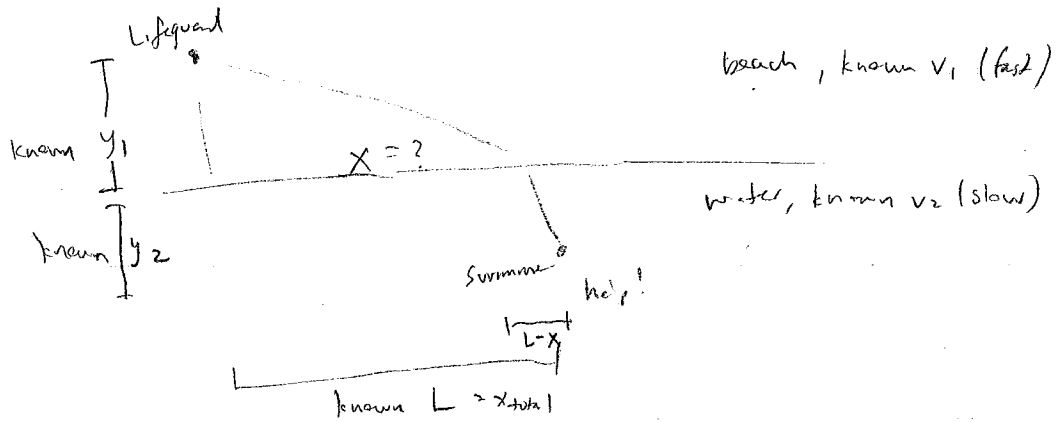 Lifeguard
beach, known v₁ (fast)
known y₁
x = ?
water, known v₂ (slow)
known y₂
Swimmer
help!
L-x
known L = x_total